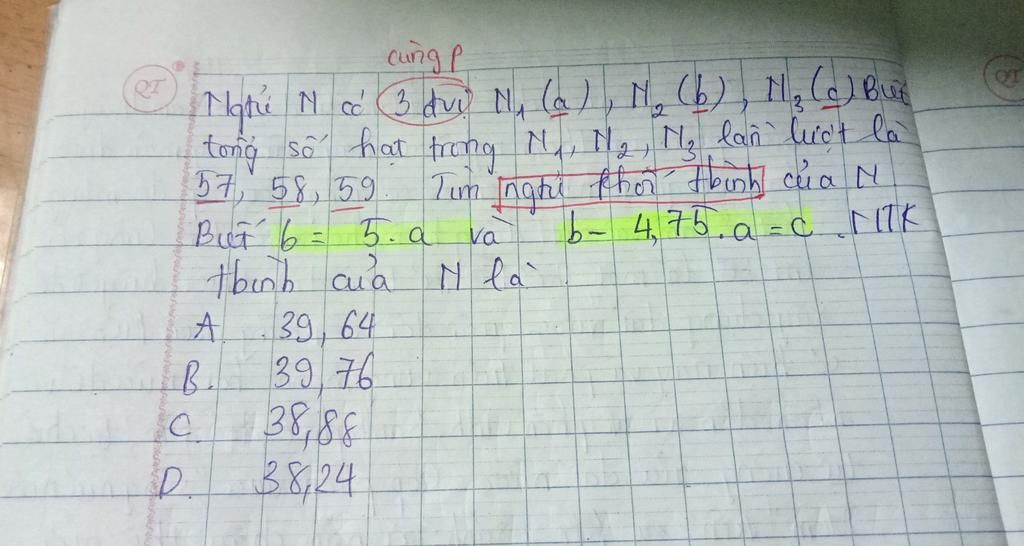 cùng p
QT
Ngtử N có 3 đvị N₁ (a), N₂ (b), N₃ (c) Biết
tổng số hạt trong N₁, N₂, N₃ lần lượt là
57, 58, 59. Tìm ngtử khối tbình của N
Biết b = 5.a và b - 4,75.a = c. NTK
tbình của N là
A. 39,64
B. 39,76
C. 38,88
D. 38,24